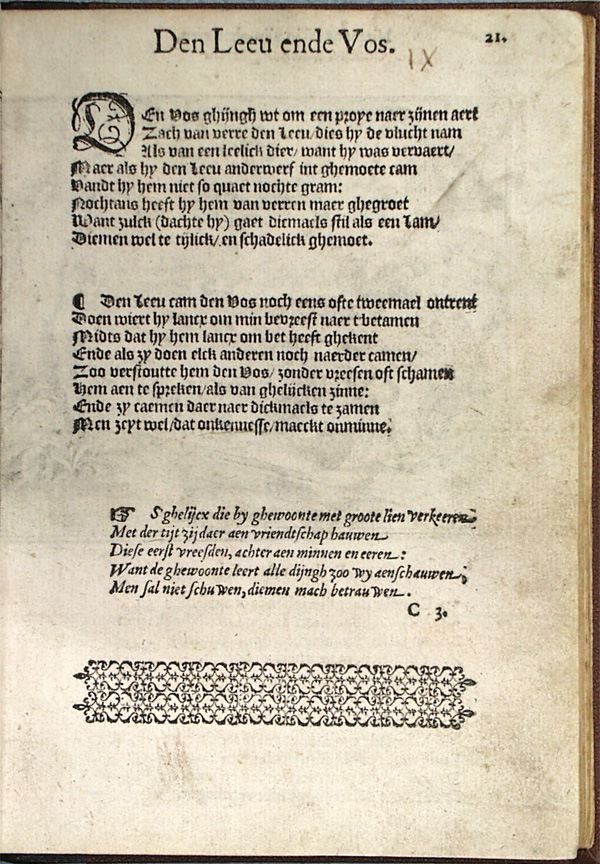 Den Leeu ende Vos.
21.
IX
EEn Vos ghijngh wt om een proye naer zijnen aert
Zach van verre den Leeu/dies hy de vlucht nam
Als van een leelick dier/ want hy was vervaert/
Maer als hy den Leeu anderwerf int ghemoete cam
Vandt hy hem niet so quaet nochte gram:
Nochtans heeft hy hem van verren maer ghegroet
Want zulck (dachte hy) gaet dicmaels stil als een Lam/
Diemen wel te tijlick/en schadelick ghemoet.
¶ Den Leeu cam den Vos noch eens ofte tweemael ontrent
Doen wiert hy lancx om min bevreest naer t'betamen
Midts dat hy hem lancx om bet heeft ghekent
Ende als zy doen elck anderen noch naerder camen/
Zoo verstoutte hem den Vos/ zonder vreesen oft schamen
Hem aen te spreken/als van ghelijcken zinne:
Ende zy caemen daer naer dickmaels te zamen
Men zeyt wel/dat onkennesse/maeckt onminne.
☞ S'ghelijcx die by ghewoonte met groote lien verkeeren
Met der tijt zij daer aen vriendtschap bauwen
Diese eerst vreesden, achter aen minnen en eeren:
Want de ghewoonte leert alle dijngh zoo wy aenschauwen;
Men sal niet schuwen, diemen mach betrauwen.
C 3.